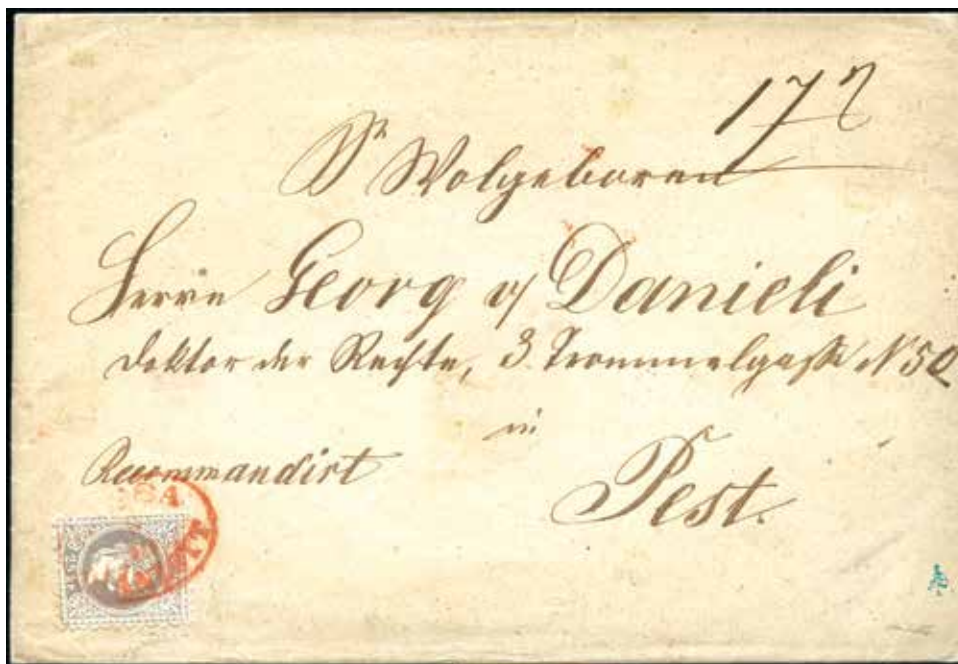 17
Sr Wolgeboren
Herrn Georg v Danieli
Doktor der Rechte, 3 Trommelgaße N 50
in
Pest.
Recommandirt